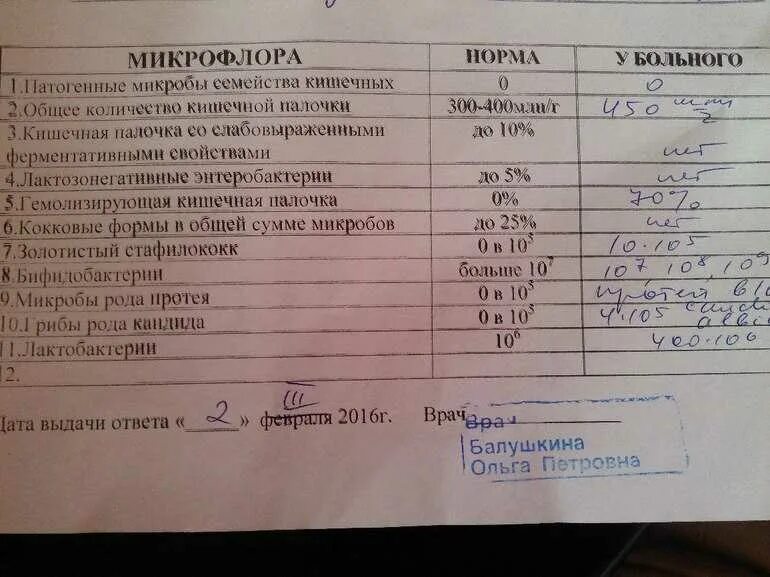 МИКРОФЛОРА НОРМА У БОЛЬНОГО
1.Патогенные микробы семейства кишечных 0 0
2.Общее количество кишечной палочки 300-400млн/г 450 млн/г
3.Кишечная палочка со слабовыраженными до 10%
ферментативными свойствами нет
4.Лактозонегативные энтеробактерии до 5% нет
5.Гемолизирующая кишечная палочка 0% 70%
6.Кокковые формы в общей сумме микробов до 25% нет
7.Золотистый стафилококк 0 в 10⁵ 10·10⁵
8.Бифидобактерии больше 10⁷ 10⁷ 10⁸, 10⁹
9.Микробы рода протея 0 в 10⁵ протей
10.Грибы рода кандида 0 в 10⁵ 4·10⁵
11.Лактобактерии 10⁶ 400·10⁶
12.
Дата выдачи ответа « 2 » февраля III 2016г. Врач
Врач
Балушкина
Ольга Петровна